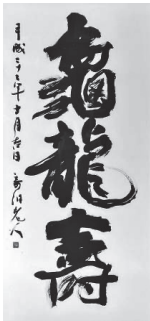 龜龍壽
平成二十二年十月吉日